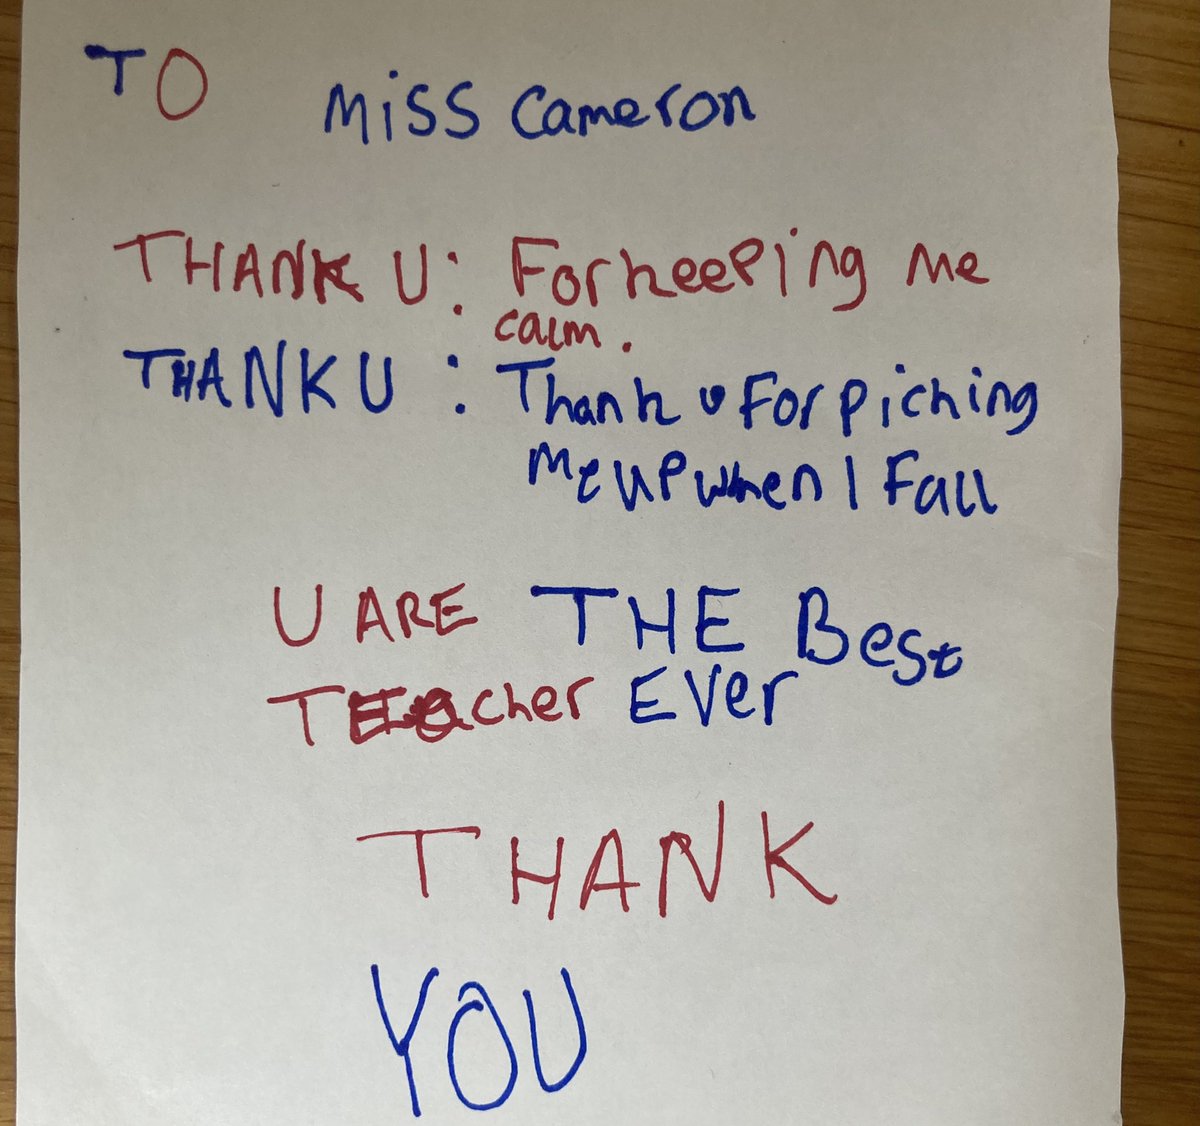 TO Miss Cameron
THANK U: For keeping Me
calm.
THANK U: Thank u For picking
Me up when I Fall
U ARE THE Best
TEacher Ever
THANK
YOU